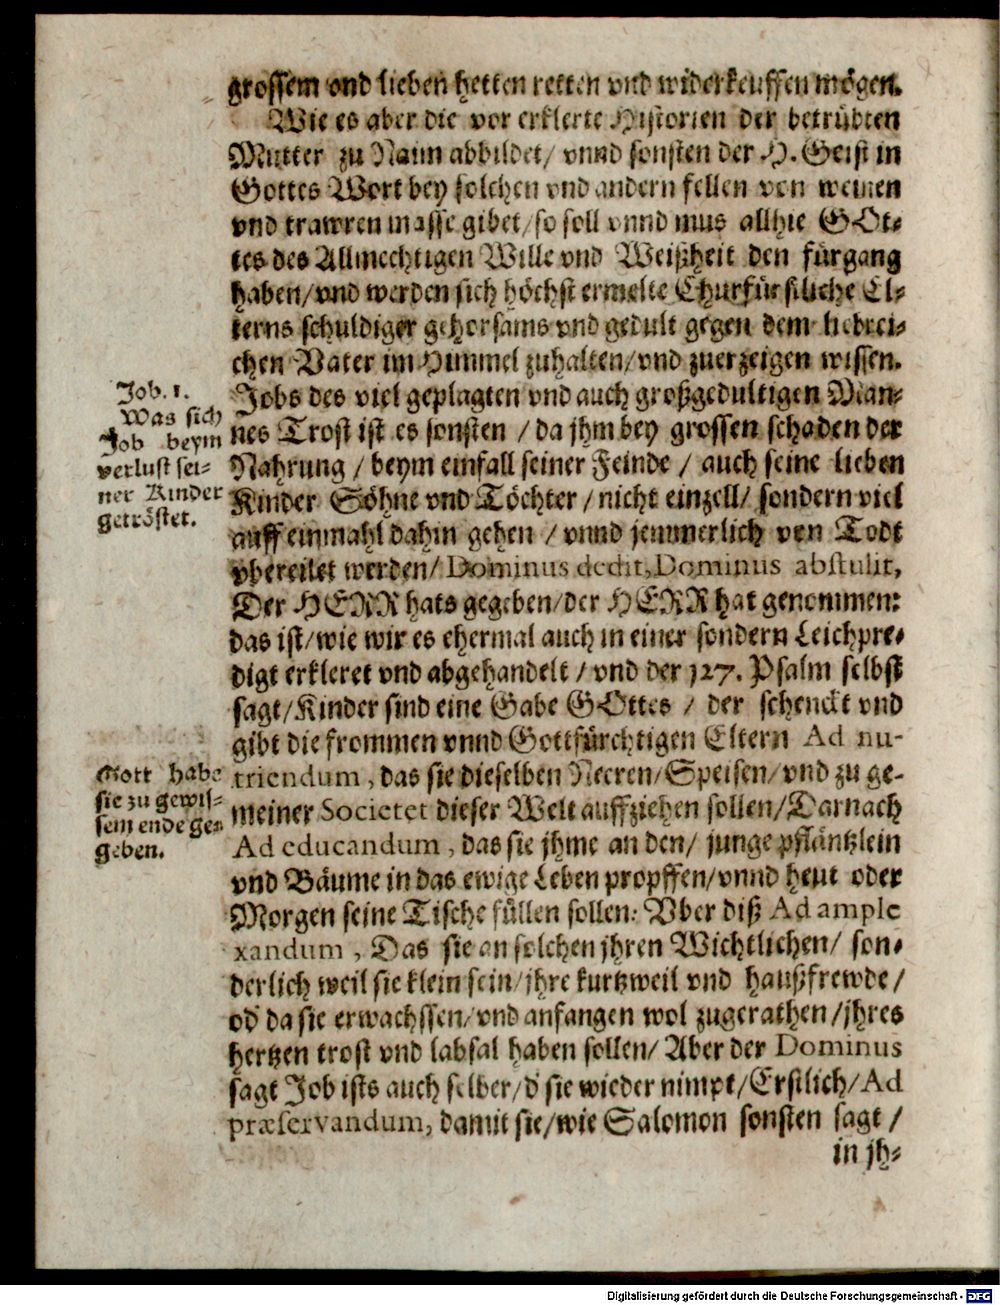 grossem vnd lieben hetten retten vnd widerkeuffen mögen.
Wie es aber die vor erklerte Historien der betrübten
Mutter zu Nain abbildet/ vnnd sonsten der H. Geist in
Gottes Wort bey solchen vnd andern fellen von weinen
vnd trawren masse gibet/ so soll vnnd mus allhie GOt-
tes des Allmechtigen Wille vnd Weißheit den fürgang
haben/ vnd werden sich höchst ermelte Churfürstliche El-
terns schuldiger gehorsams vnd gedult gegen dem liebrei-
chen Vater im Himmel zuhalten/ vnd zuerzeigen wissen.
Job. 1.
Was sich
Job beym
verlust sei-
ner Kinder
getröstet.
Jobs des viel geplagten vnd auch großgedultigen Man-
nes Trost ist es sonsten / da jhm bey grossen schaden der
Nahrung / beym einfall seiner Feinde / auch seine lieben
Kinder Söhne vnd Töchter / nicht einzell/ sondern viel
auff einmahl dahin gehen / vnnd jemmerlich von Todt
vbereilet werden/ Dominus dedit, Dominus abstulit,
Der HERR hats gegeben/ der HERR hat genommen:
das ist/ wie wir es ehermal auch in einer sondern Leichpre-
digt erkleret vnd abgehandelt / vnd der 127. Psalm selbst
sagt/ Kinder sind eine Gabe GOttes / der schenckt vnd
gibt die frommen vnnd Gottfürchtigen Eltern Ad nu-
Gott habe
sie zu gewis-
sem ende ge-
geben.
triendum, das sie dieselben Neeren/ Speisen/ vnd zu ge-
meiner Societet dieser Welt auffziehen sollen/ Darnach
Ad educandum, das sie jhme an den/ junge pfläntzlein
vnd Bäume in das ewige Leben propffen/ vnnd heut oder
Morgen seine Tische füllen sollen: Vber diß Ad ample
xandum, Das sie an solchen jhren Wichtlichen/ son-
derlich weil sie klein sein/ jhre kurtzweil vnd haußfrewde /
od' da sie erwachssen/ vnd anfangen wol zugerathen / jhres
hertzen trost vnd labsal haben sollen/ Aber der Dominus
sagt Job ists auch selber/ d' sie wieder nimpt/ Erstlich/ Ad
præservandum, damit sie/ wie Salomon sonsten sagt /
in jh-
Digitalisierung gefördert durch die Deutsche Forschungsgemeinschaft - DFG